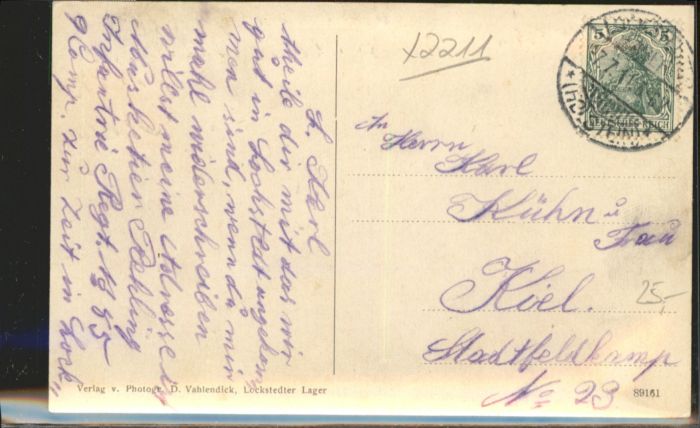 L. Karl
theile dir mit das wir
gut in Lockstedt
men sind, wenn du mir
mahl niderschreiben
willst meine Adresse
Musketier
Infantrie Regt. No 85
Komp. zur Zeit in Lock"
x2211
5 5
DEUTSCHES REICH
An
Herrn
Karl
Kühn u
Frau
Kiel.
Stadtfeldkamp
No 23
25,-
Verlag v. Photogr. D. Vahlendick, Lockstedter Lager
89161